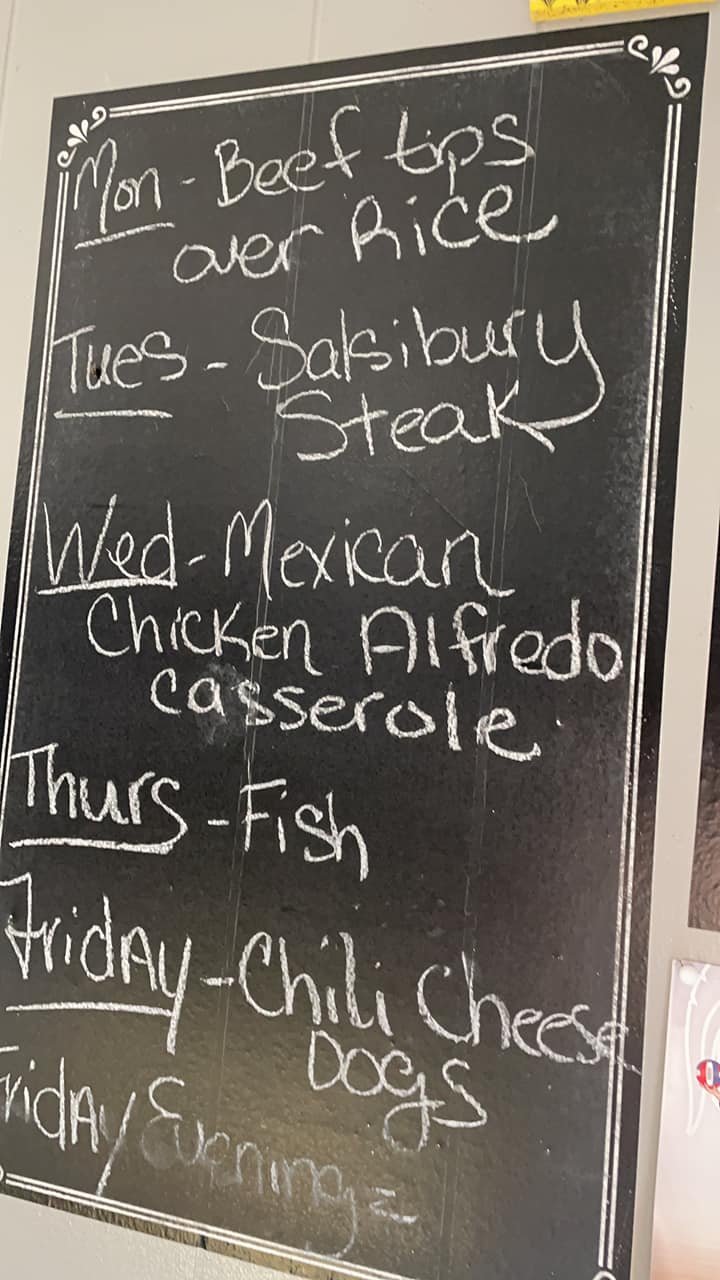 Mon - Beef tips
over Rice
Tues - Salsibury
Steak
Wed - Mexican
Chicken Alfredo
casserole
Thurs - Fish
Friday - Chili Cheese
DOgS
Friday Evening =